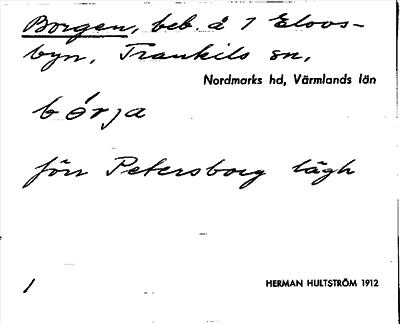 Borgen, beb. å 1 Elovs-
byn, Trankils sn,
Nordmarks hd, Värmlands län
börja
förr Petersborg lägh
1
HERMAN HULTSTRÖM 1912